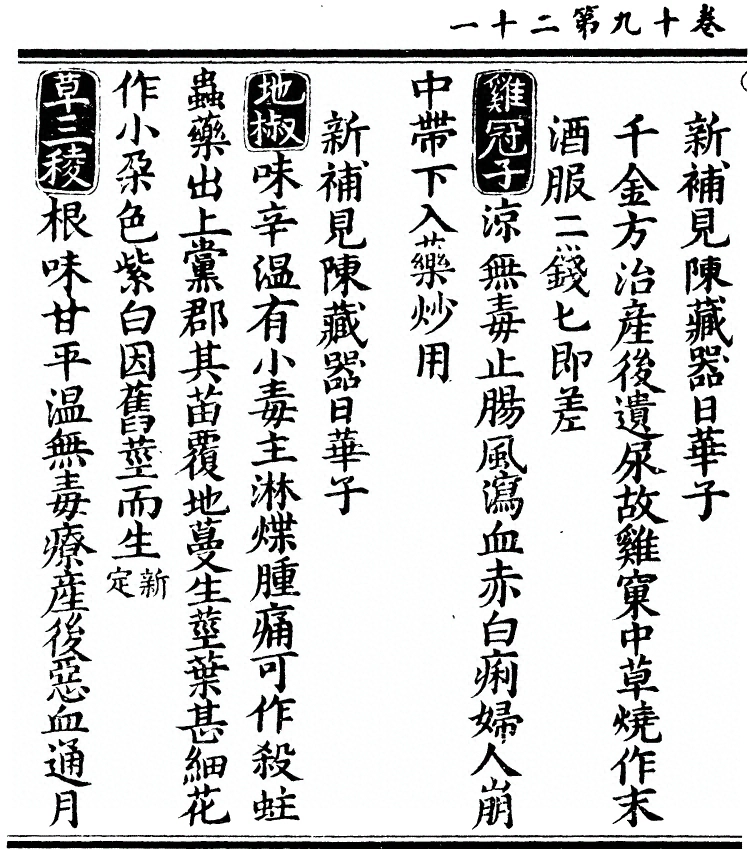 卷十九第二十一
新補見陳藏器日華子
千金方治産後遺尿故雞窠中草燒作末
酒服二錢匕即差
雞冠子涼無毒止腸風瀉血赤白痢婦人崩
中帶下入藥炒用
新補見陳藏器日華子
地椒味辛溫有小毒主淋煠腫痛可作殺蛀
蟲藥出上黨郡其苗覆地蔓生莖葉甚細花
作小朶色紫白因舊莖而生新定
草三稜根味甘平溫無毒療産後惡血通月